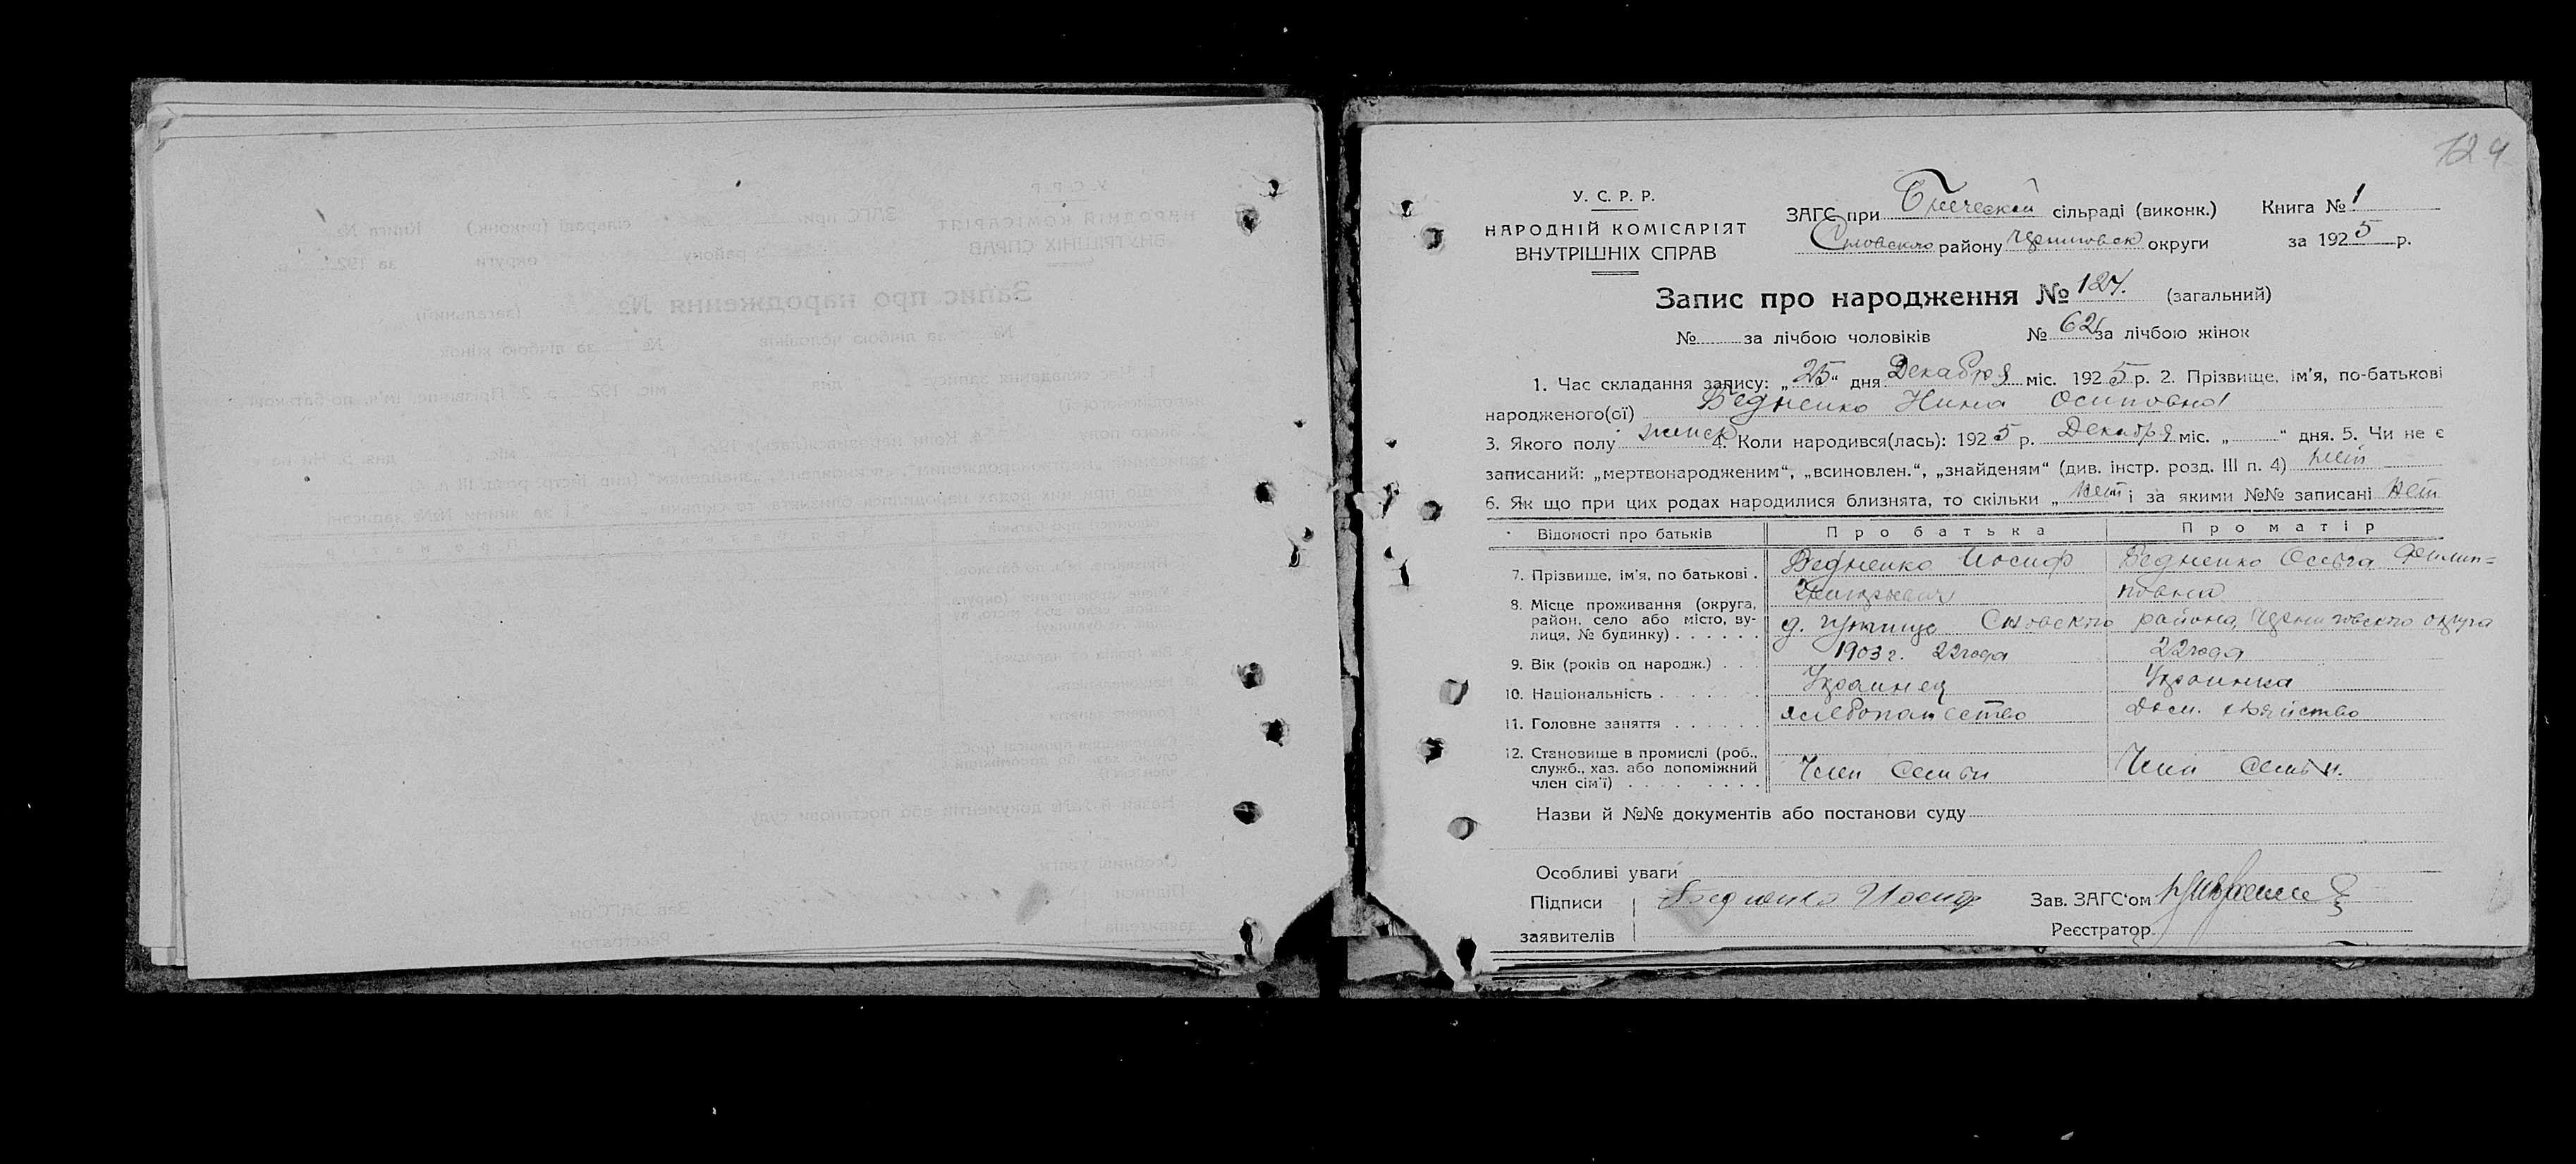 124
У. С. Р. Р.
НАРОДНІЙ КОМІСАРІЯТ
ВНУТРІШНІХ СПРАВ
ЗАГС при сільраді (виконк.) Книга № 1
Сновского району Черниговск округи за 1925 р.
Запис про народження № 127. (загальний)
№ за лічбою чоловіків № 62 за лічбою жінок
1. Час складання запису: „25“ дня Декабря міс. 1925 р. 2. Прізвище, ім'я, по-батькові
народженого(ої) Бедненко Нина Осиповна
3. Якого полу женск 4. Коли народився(лась): 1925 р. Декабря міс. „ “ дня. 5. Чи не є
записаний: „мертвонародженим“, „всиновлен.“, „знайденям“ (див. інстр. розд. III п. 4) нет
6. Як що при цих родах народилися близнята, то скільки „ нет і за якими №№ записані нет
Відомості про батьків Про батька Про матір
7. Прізвище, ім'я, по батькові . Бедненко Иосиф Бедненко Ольга Филип=
повна
8. Місце проживання (округа, район, село або місто, вулиця, № будинку) . . . . . . д. Сновского района, Черниговского округа
9. Вік (років од народж.) . . . 1903 г. 22 года 22 года
10. Національність . . . . . . Украинец Украинка
11. Головне заняття . . . . . . хлебопашество Дом. хозяйство
12. Становище в промислі (роб., служб., хаз. або допоміжний член сім'ї) . . . . . . . . Член семьи Член семьи.
Назви й №№ документів або постанови суду
Особливі уваги
Підписи Бедненко Иосиф Зав. ЗАГС'ом
заявителів Реєстратор